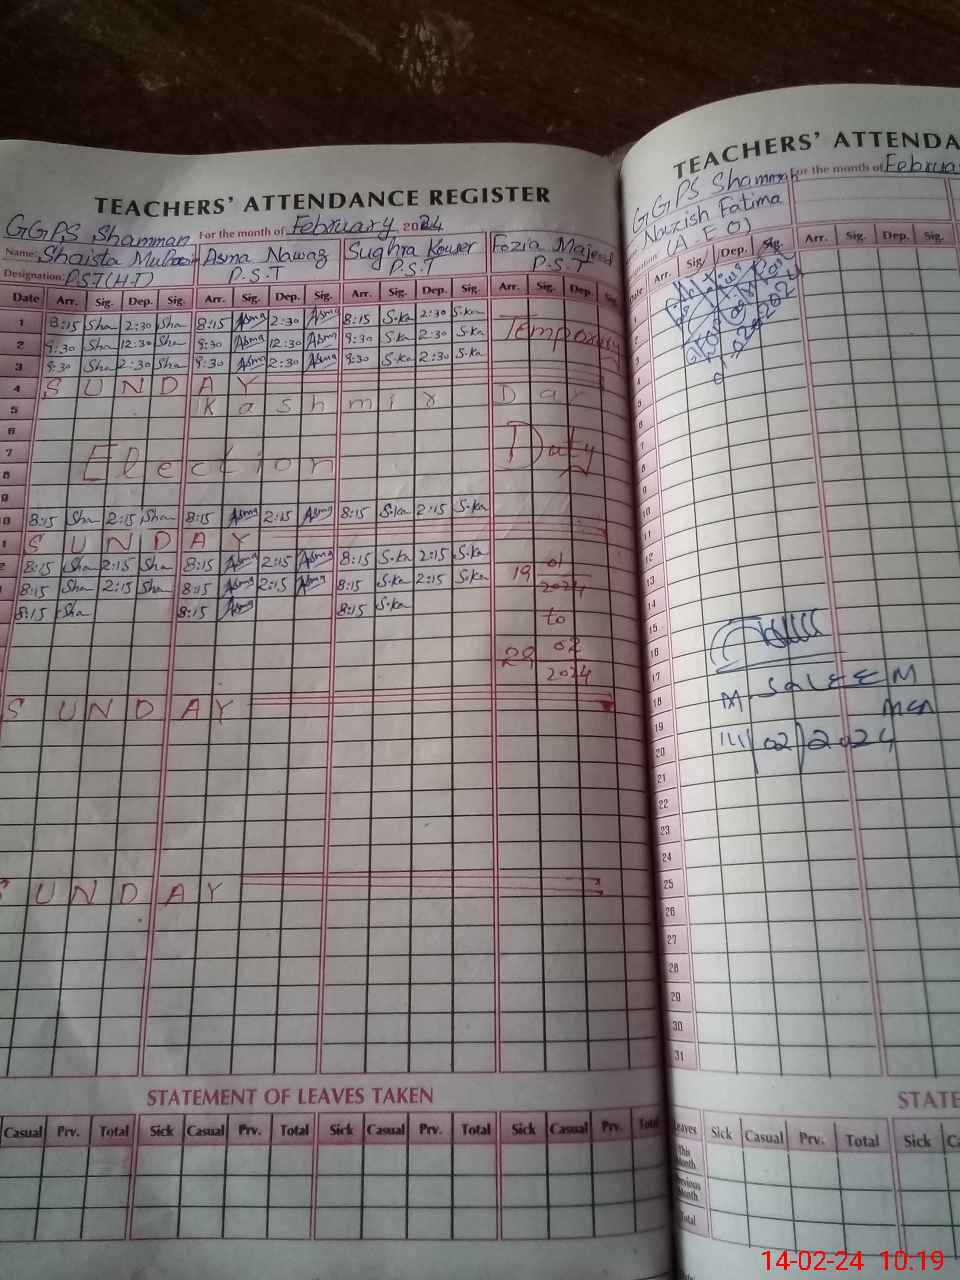 TEACHERS' ATTENDANCE REGISTER
GGPS Shamman For the month of February 2024
Name: Shaista Asma Nawaz Sughra Kouser Fozia Majeed
Designation: PST(H.T) P.S.T P.S.T P.S.T
Date Arr. Sig. Dep. Sig. Arr. Sig. Dep. Sig. Arr. Sig. Dep. Sig. Arr. Sig. Dep. Sig.
1 8:15 Sha 2:30 Sha 8:15 Asma 2:30 Asma 8:15 S.ka 2:30 S.ka Temporary
2 9:30 Sha 12:30 Sha 9:30 Asma 12:30 Asma 9:30 S.ka 2:30 S.ka
3 9:30 Sha 2:30 Sha 9:30 Asma 2:30 Asma 9:30 S.ka 2:30 S.ka
4 SUNDAY
5 Kashmir Day
6
7 Election Duty
8
9
8:15 Sha 2:15 Sha 8:15 Asma 2:15 Asma 8:15 S.ka 2:15 S.ka
SUNDAY
8:15 Sha 2:15 Sha 8:15 Asma 2:15 Asma 8:15 S.ka 2:15 S.ka
8:15 Sha 2:15 Sha 8:15 Asma 2:15 Asma 8:15 S.ka 2:15 S.ka
8:15 Sha 8:15 Asma 8:15 S.ka
19 01 2024
to
29 02 2024
SUNDAY
SUNDAY
STATEMENT OF LEAVES TAKEN
Casual Prv. Total Sick Casual Prv. Total Sick Casual Prv. Total Sick Casual Prv. Total
TEACHERS' ATTENDA
GGPS Shamman For the month of Februa
Nazish Fatima
(A.E.O)
Arr. Sig. Dep. Sig. Arr. Sig. Dep. Sig.
1
2
3
4
5
6
7
8
9
10
11
12
13
14
15
16
17
18
19
20
21
22
23
24
25
26
27
28
29
30
31
M SALEEM
MEA
14/02/2024
STATE
Leaves Sick Casual Prv. Total Sick
This Month
Previous Month
Total
14-02-24 10:19